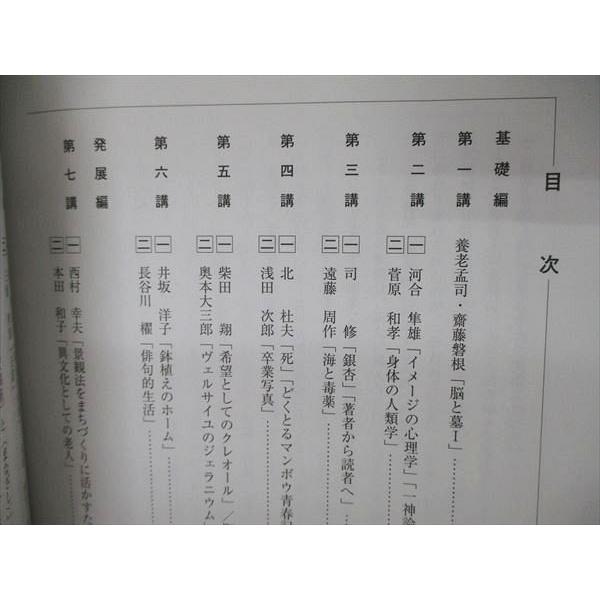 目次
基礎編
第一講 養老孟司・齋藤磐根「脳と墓Ⅰ」
第二講 一 河合 隼雄「イメージの心理学」「一神論
二 菅原 和孝「身体の人類学」
第三講 一 司 修「銀杏」「著者から読者へ」
二 遠藤 周作「海と毒薬」
第四講 一 北 杜夫「死」「どくとるマンボウ青春記
二 浅田 次郎「卒業写真」
第五講 一 柴田 翔「希望としてのクレオール」／
二 奥本大三郎「ヴェルサイユのジェラニウム」
第六講 一 井坂 洋子「鉢植えのホーム」
二 長谷川 櫂「俳句的生活」
発展編
第七講 一 西村 幸夫「景観法をまちづくりに活かすた
二 本田 和子「異文化としての老人」